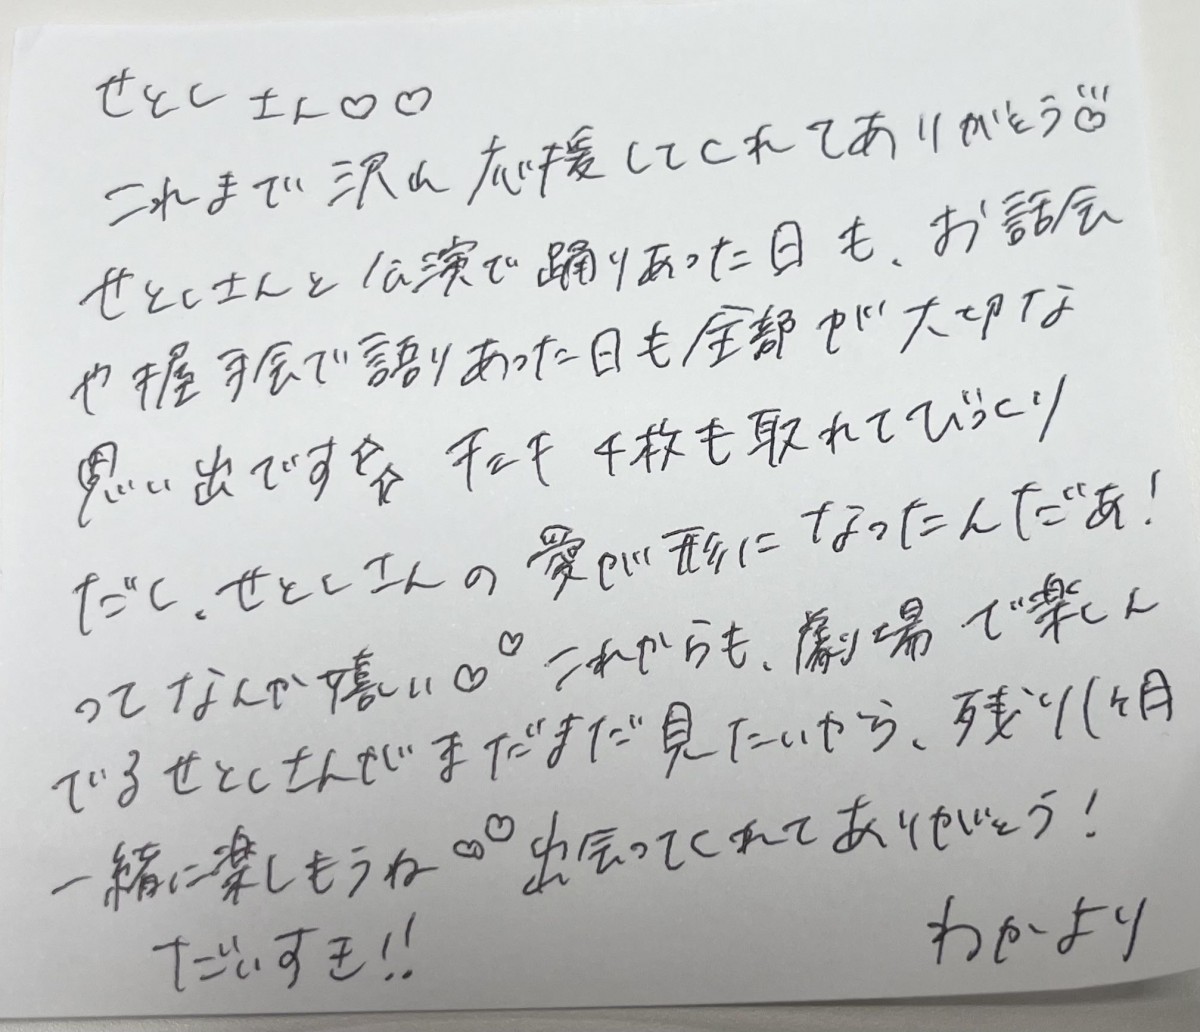 せとしさん♡♡
これまで沢山応援してくれてありがとう
せとしさんと公演で踊りあった日も、お話会
や握手会で語りあった日も全部が大切な
思い出です☆☆ チェキ千枚も取れてびっくり
だし、せとしさんの愛が形になったんだぁ!
ってなんか嬉しい♡♡これからも、劇場で楽しん
でるせとしさんがまだまだ見たいから、残り1ヶ月
一緒に楽しもうね♡♡出会ってくれてありがとう!
だいすき!!
わかより